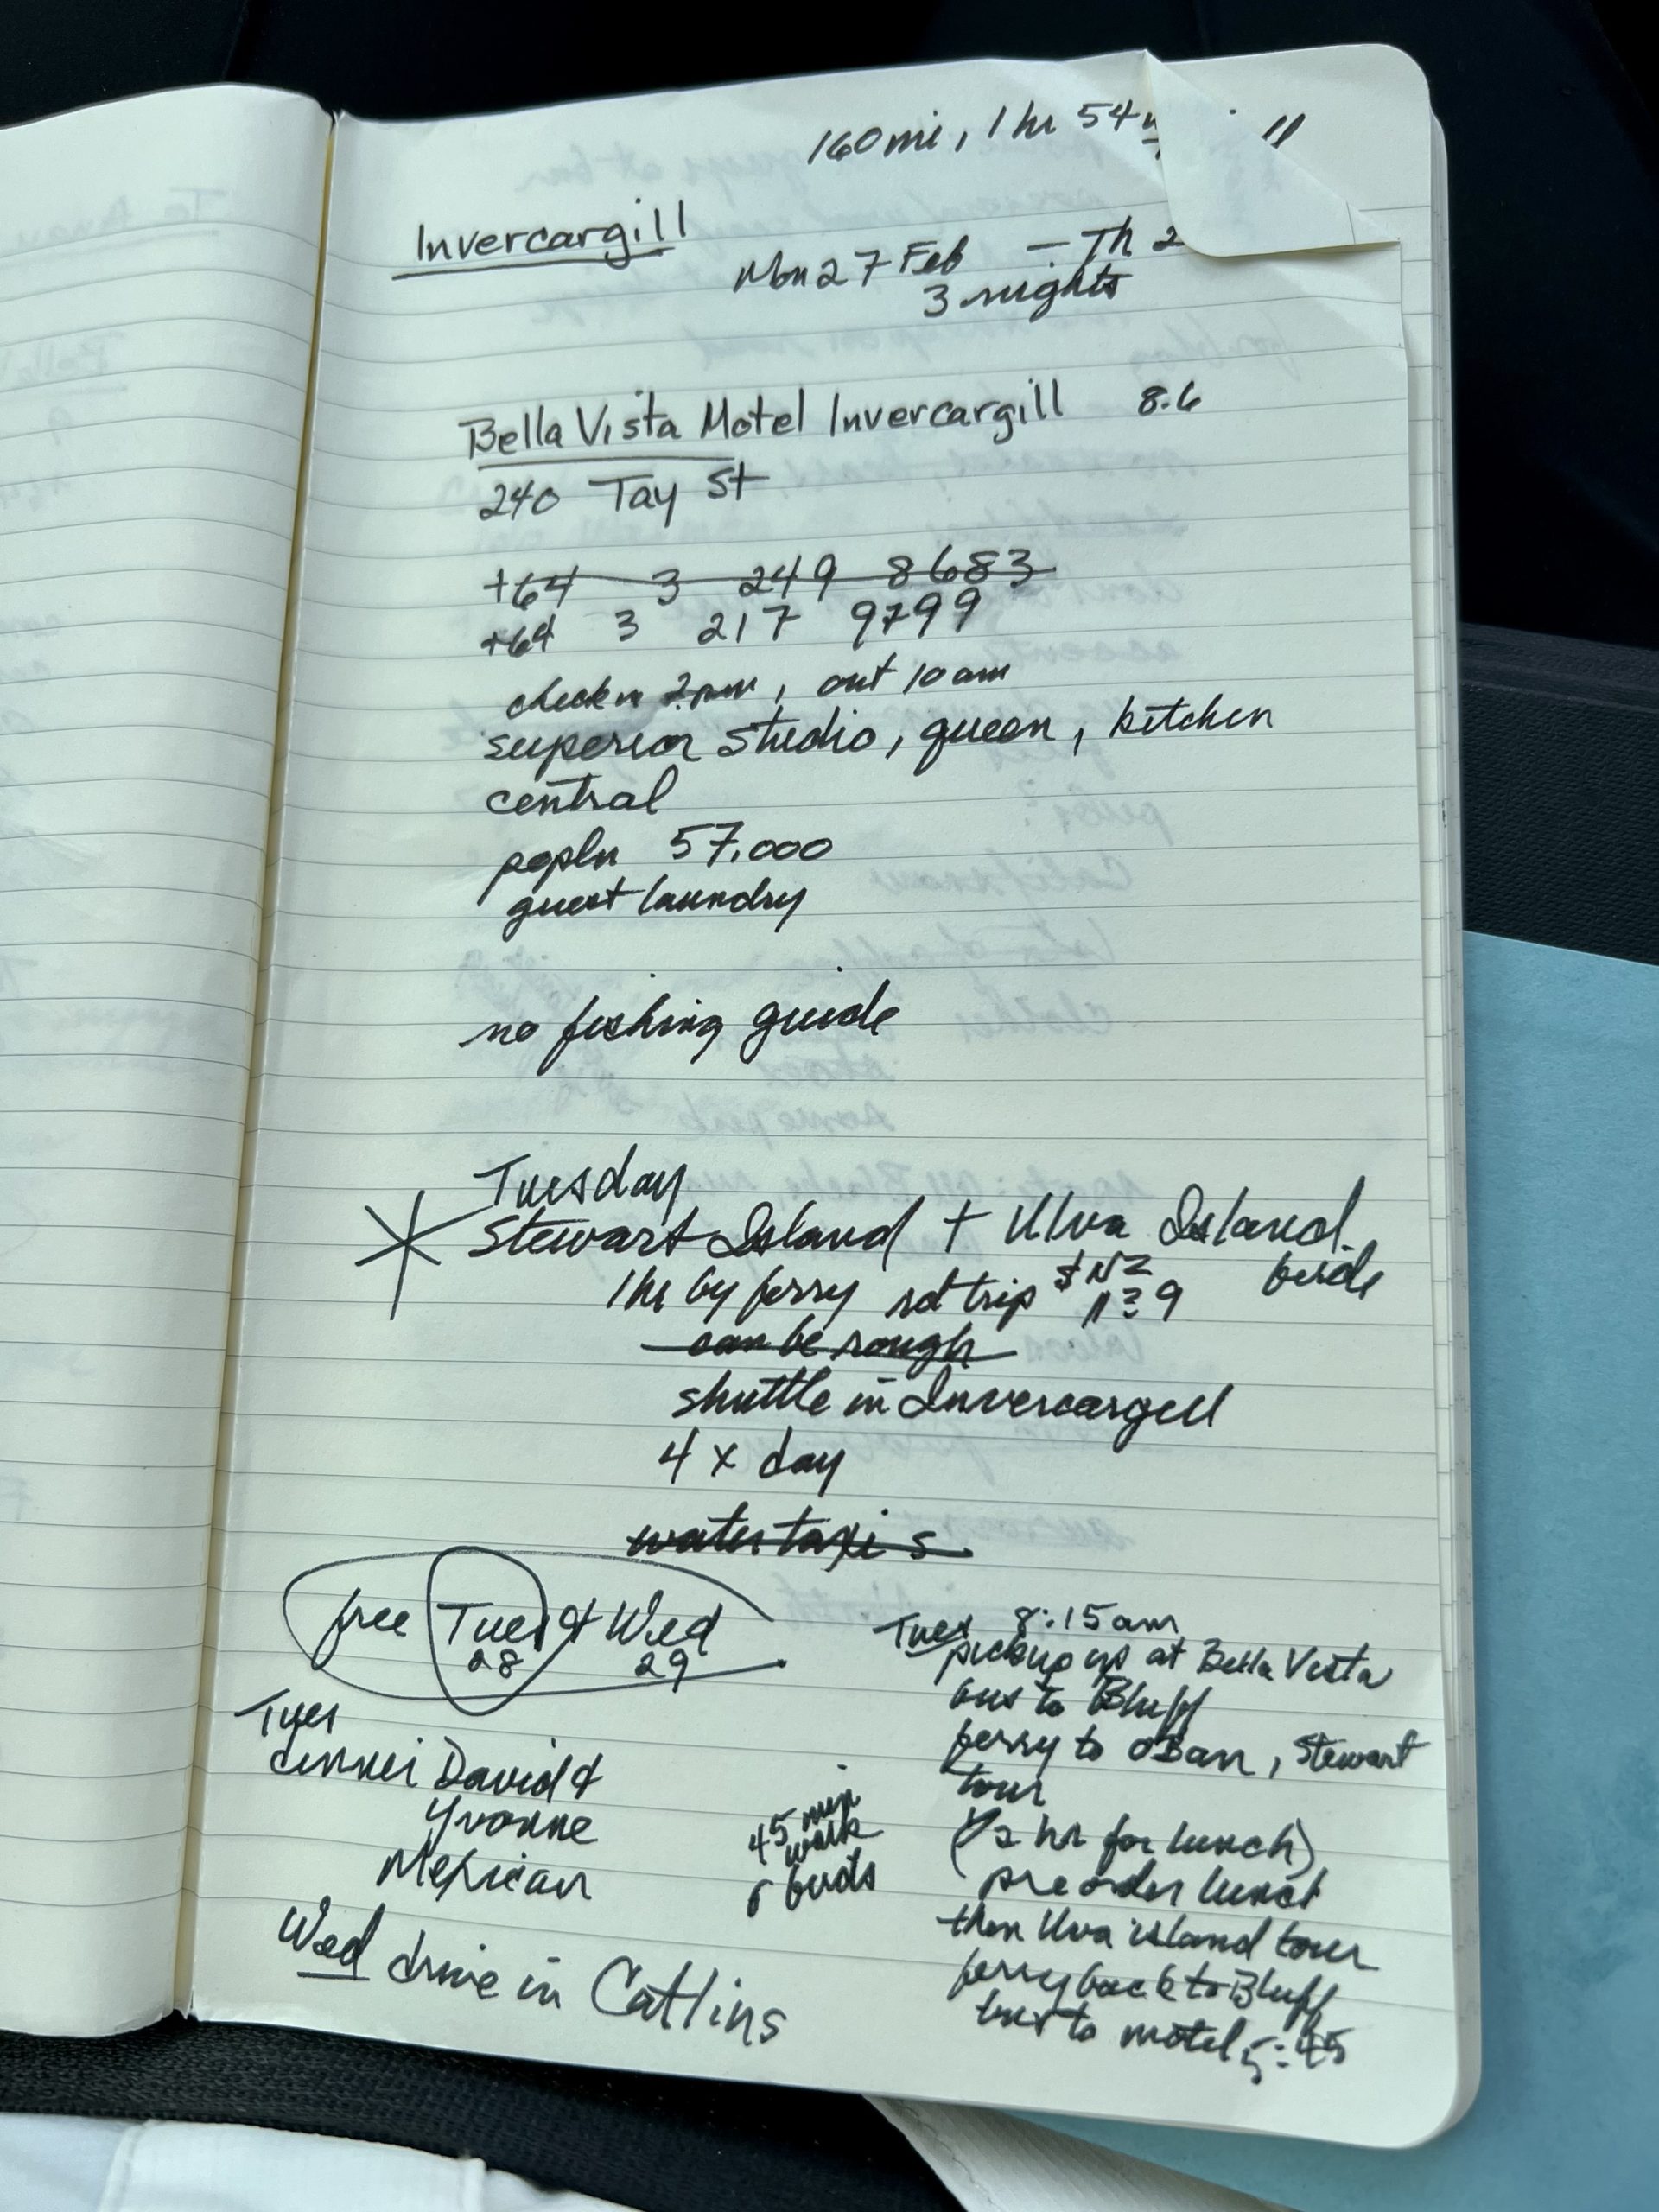 160 mi, 1 hr 54
Invercargill
Mon 27 Feb - Th 2
3 nights
Bella Vista Motel Invercargill 8.6
240 Tay St
+64 3 249 8683
+64 3 217 9799
check in 2pm, out 10 am
superior studio, queen, kitchen
central
popln 57,000
guest laundry
no fishing guide
Tuesday
Stewart Island + Ulva Island
birds
1 hr by ferry rd trip $NZ
can be rough
shuttle in Invercargill
4 x day
water taxi s
free Tues & Wed
28 29
Tues
dinner David &
Yvonne
Mexican
Wed drive in Catlins
45 min
walk
birds
Tues 8:15 am
pickup us at Bella Vista
bus to Bluff
ferry to OBan, Stewart
tour
(1/2 hr for lunch)
pre order lunch
then Ulva island tour
ferry back to Bluff
bus to motel 5:45